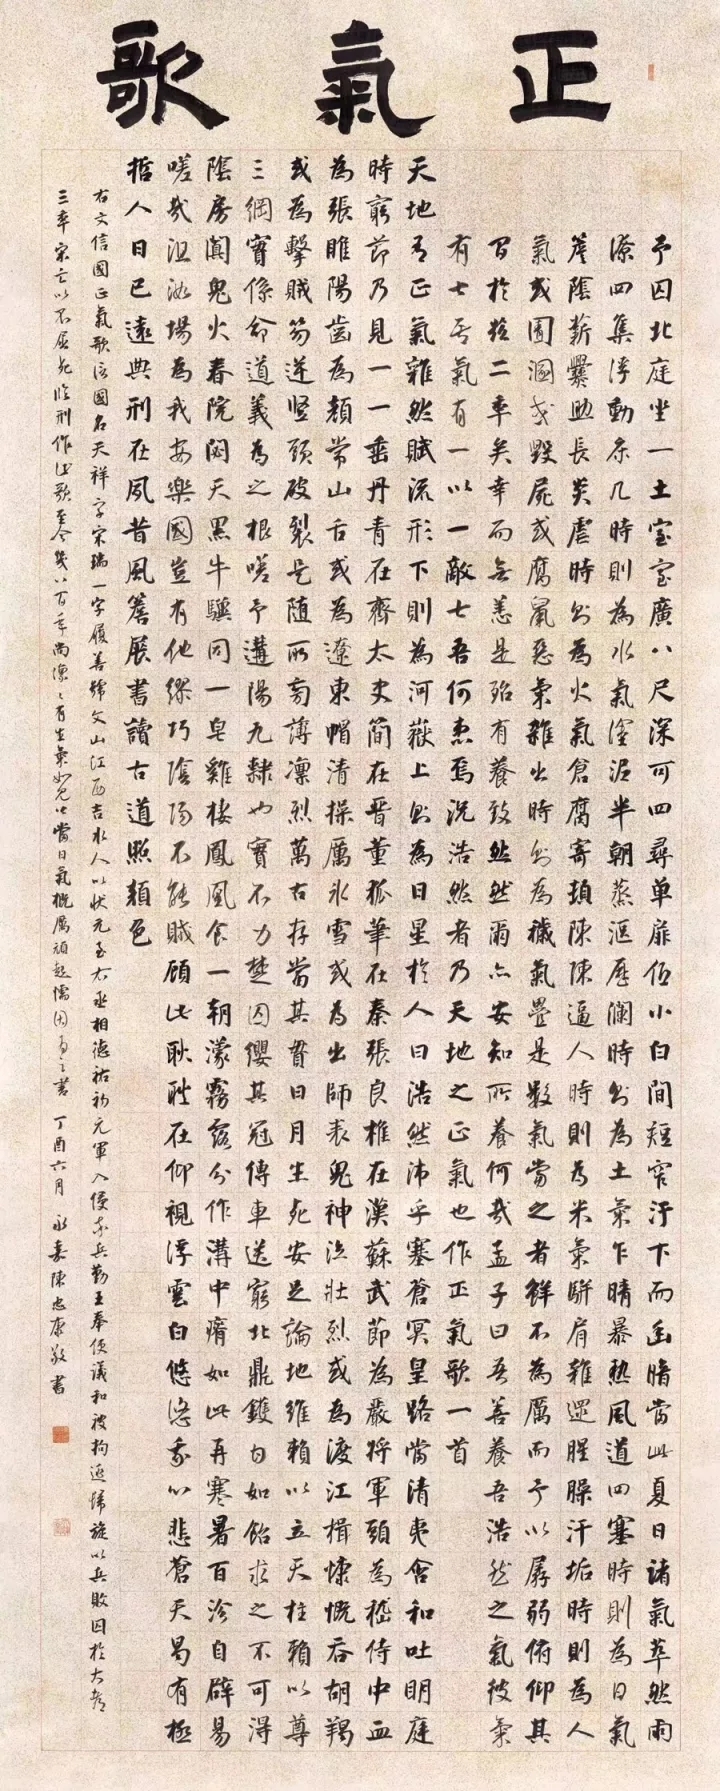 正氣歌
予囚北庭坐一土室室廣八尺深可四尋單扉低小白間短窄汙下而幽暗當此夏日諸氣萃然雨
潦四集浮動床几時則為水氣塗泥半朝蒸漚歷瀾時則為土氣乍晴暴熱風道四塞時則為日氣
簷陰薪爨助長炎虐時則為火氣倉腐寄頓陳陳逼人時則為米氣駢肩雜遝腥臊汗垢時則為人
氣或圊溷或毀屍或腐鼠惡氣雜出時則為穢氣疊是數氣當之者鮮不為厲而予以孱弱俯仰其
間於茲二年矣幸而無恙是殆有養致然然爾亦安知所養何哉孟子曰吾善養吾浩然之氣彼氣
有七吾氣有一以一敵七吾何患焉況浩然者乃天地之正氣也作正氣歌一首
天地有正氣雜然賦流形下則為河嶽上則為日星於人曰浩然沛乎塞蒼冥皇路當清夷含和吐明庭
時窮節乃見一一垂丹青在齊太史簡在晉董狐筆在秦張良椎在漢蘇武節為嚴將軍頭為嵇侍中血
為張睢陽齒為顏常山舌或為遼東帽清操厲冰雪或為出師表鬼神泣壯烈或為渡江楫慷慨吞胡羯
或為擊賊笏逆豎頭破裂是隨所旁薄凜烈萬古存當其貫日月生死安足論地維賴以立天柱賴以尊
三綱實係命道義為之根嗟予遘陽九隸也實不力楚囚纓其冠傳車送窮北鼎鑊甘如飴求之不可得
陰房闃鬼火春院閟天黑牛驥同一皂雞棲鳳凰食一朝濛霧露分作溝中瘠如此再寒暑百沴自辟易
嗟哉沮洳場為我安樂國豈有他繆巧陰陽不能賊顧此耿耿在仰視浮雲白悠悠我心悲蒼天曷有極
哲人日已遠典刑在夙昔風簷展書讀古道照顏色
右文信國正氣歌信國名天祥字宋瑞一字履善號文山江西吉水人以狀元至右丞相德祐初元軍入侵率兵勤王奉使議和被拘遁歸旋以兵敗囚於大都
三年宋亡以不屈死臨刑作此歌至今幾八百年尚凜凜有生氣如見此當日氣概厲頑起懦因為之書 丁酉六月 永嘉陳忠康敬書